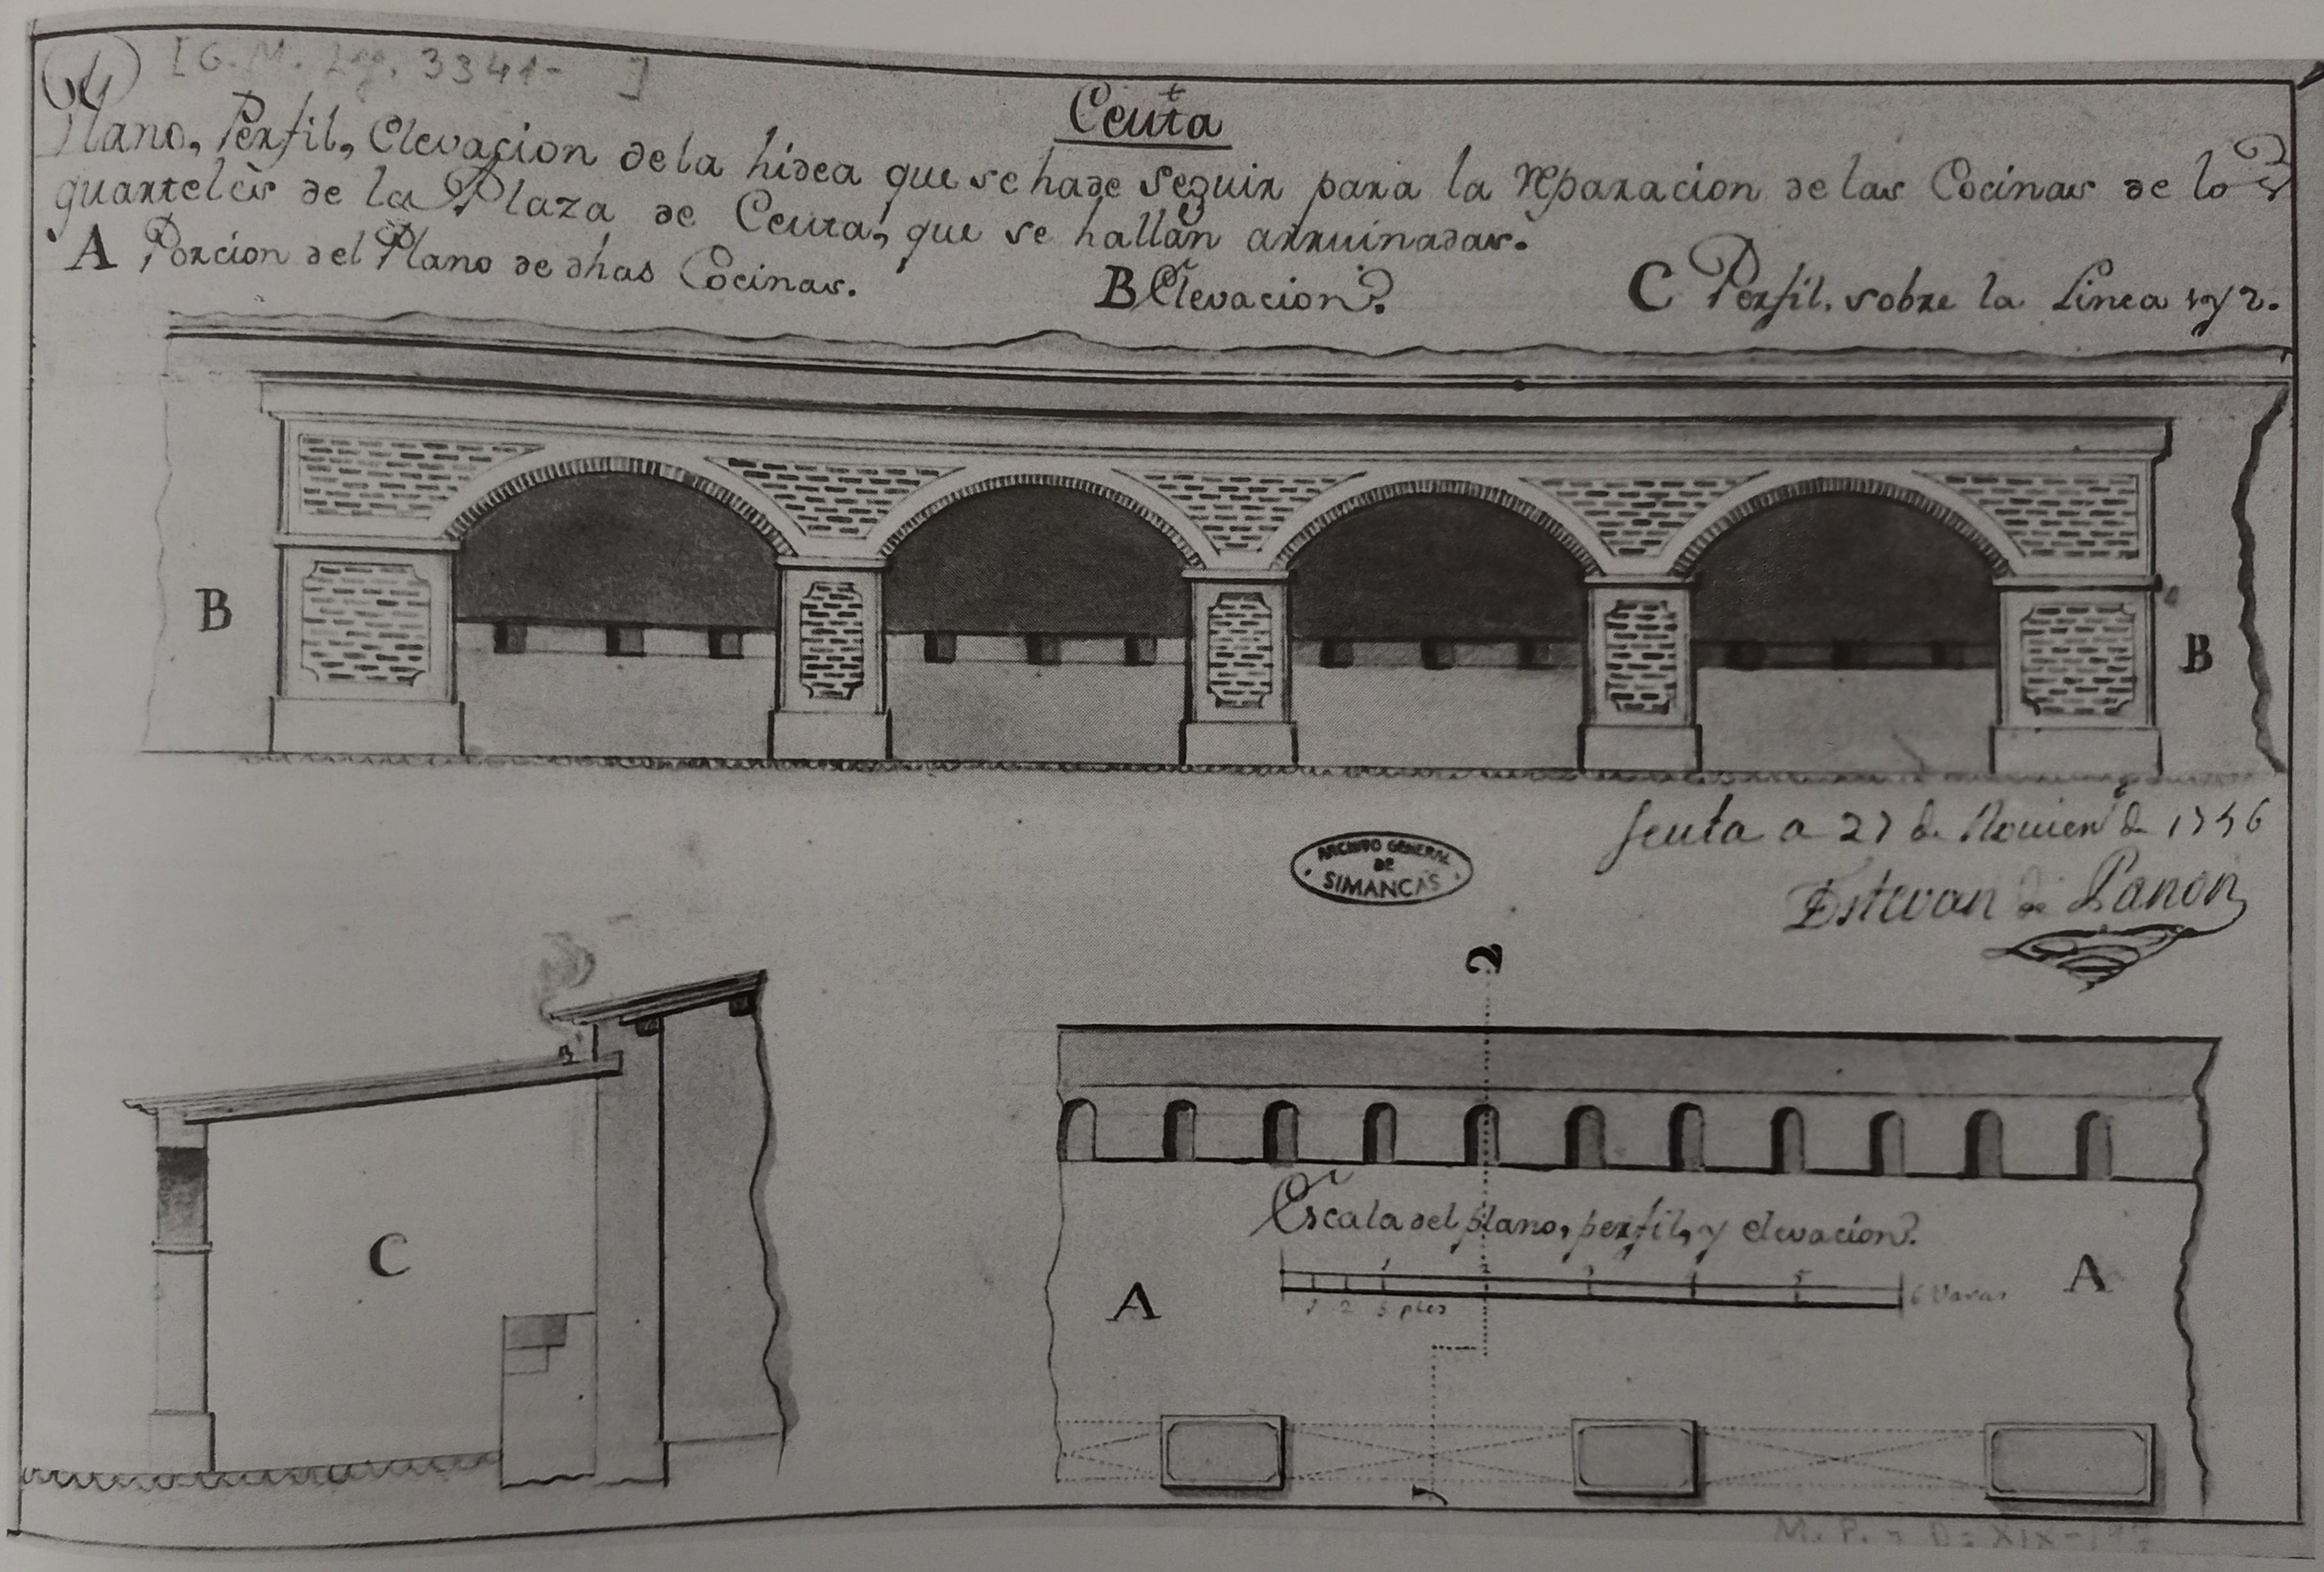 [G. M. Leg. 3341- ]
Ceuta
Plano, Perfil, Elevacion de la hidea que se ha de seguir para la reparacion de las Cocinas de los
quarteles de la Plaza de Ceuta, que se hallan arruinadas.
A Porcion del Plano de dhas Cocinas.
B Elevacion.
C Perfil, sobre la Linea 1 y 2.
B
B
Seuta a 27 de de 1746
ARCHIVO GENERAL
DE
SIMANCAS
Estevan de Panon
2
C
Escala del plano, perfil, y elevacion.
1 2 3 4 5 6 Varas
1 2 3 pies
A
A
1
M. P. - D: XIX-